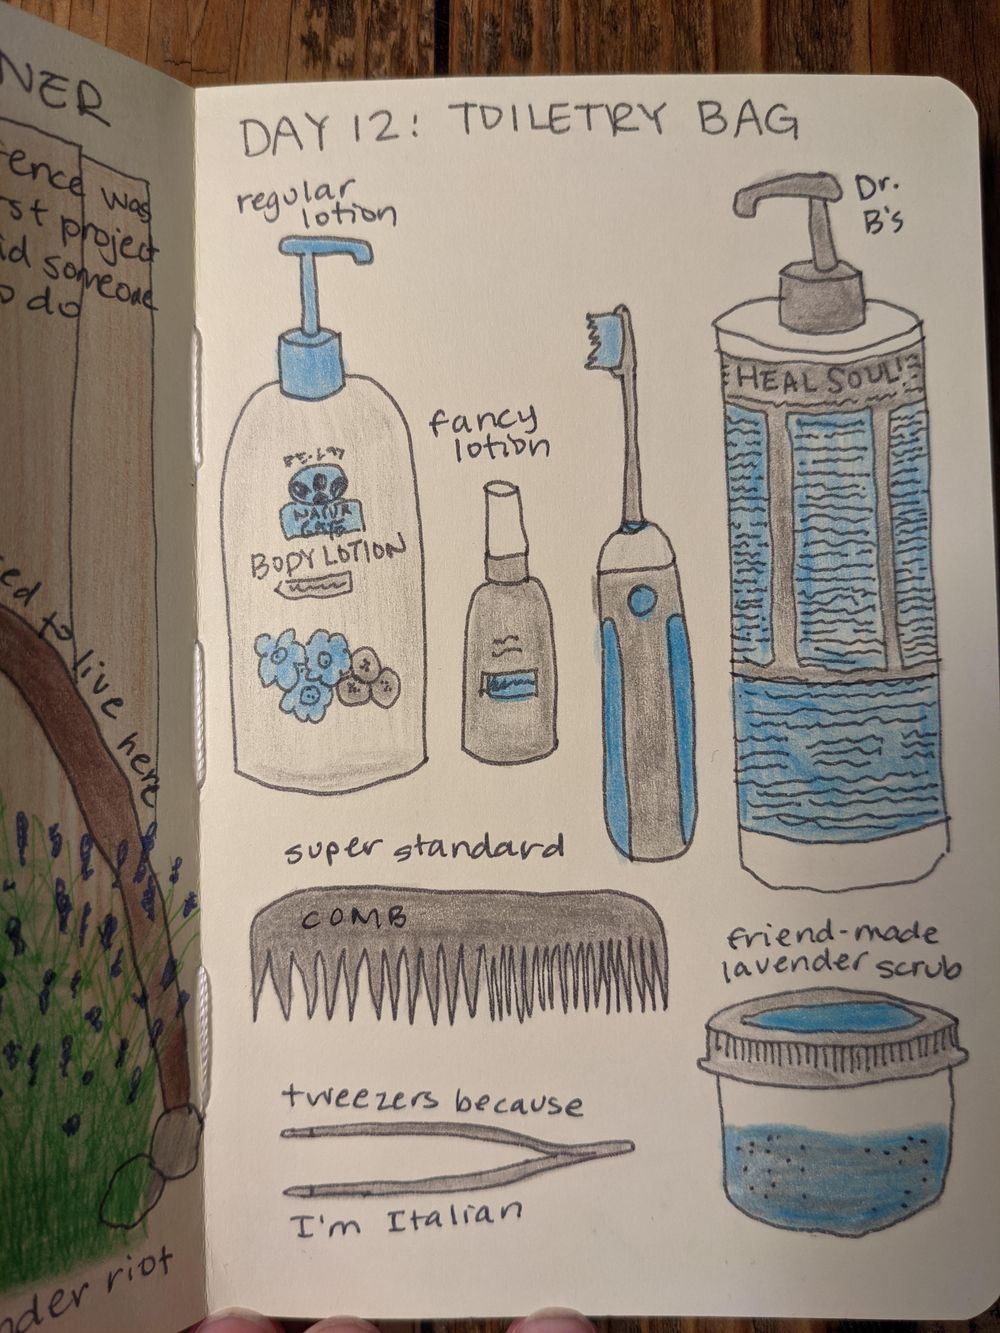 NER
fence was
rst project
id someone
o do
ed to live here
nder riot
DAY 12: TOILETRY BAG
regular
lotion
Dr.
B's
HEAL SOUL!
fancy
lotion
NATUR
BODY LOTION
super standard
COMB
friend-made
lavender scrub
tweezers because
I'm Italian